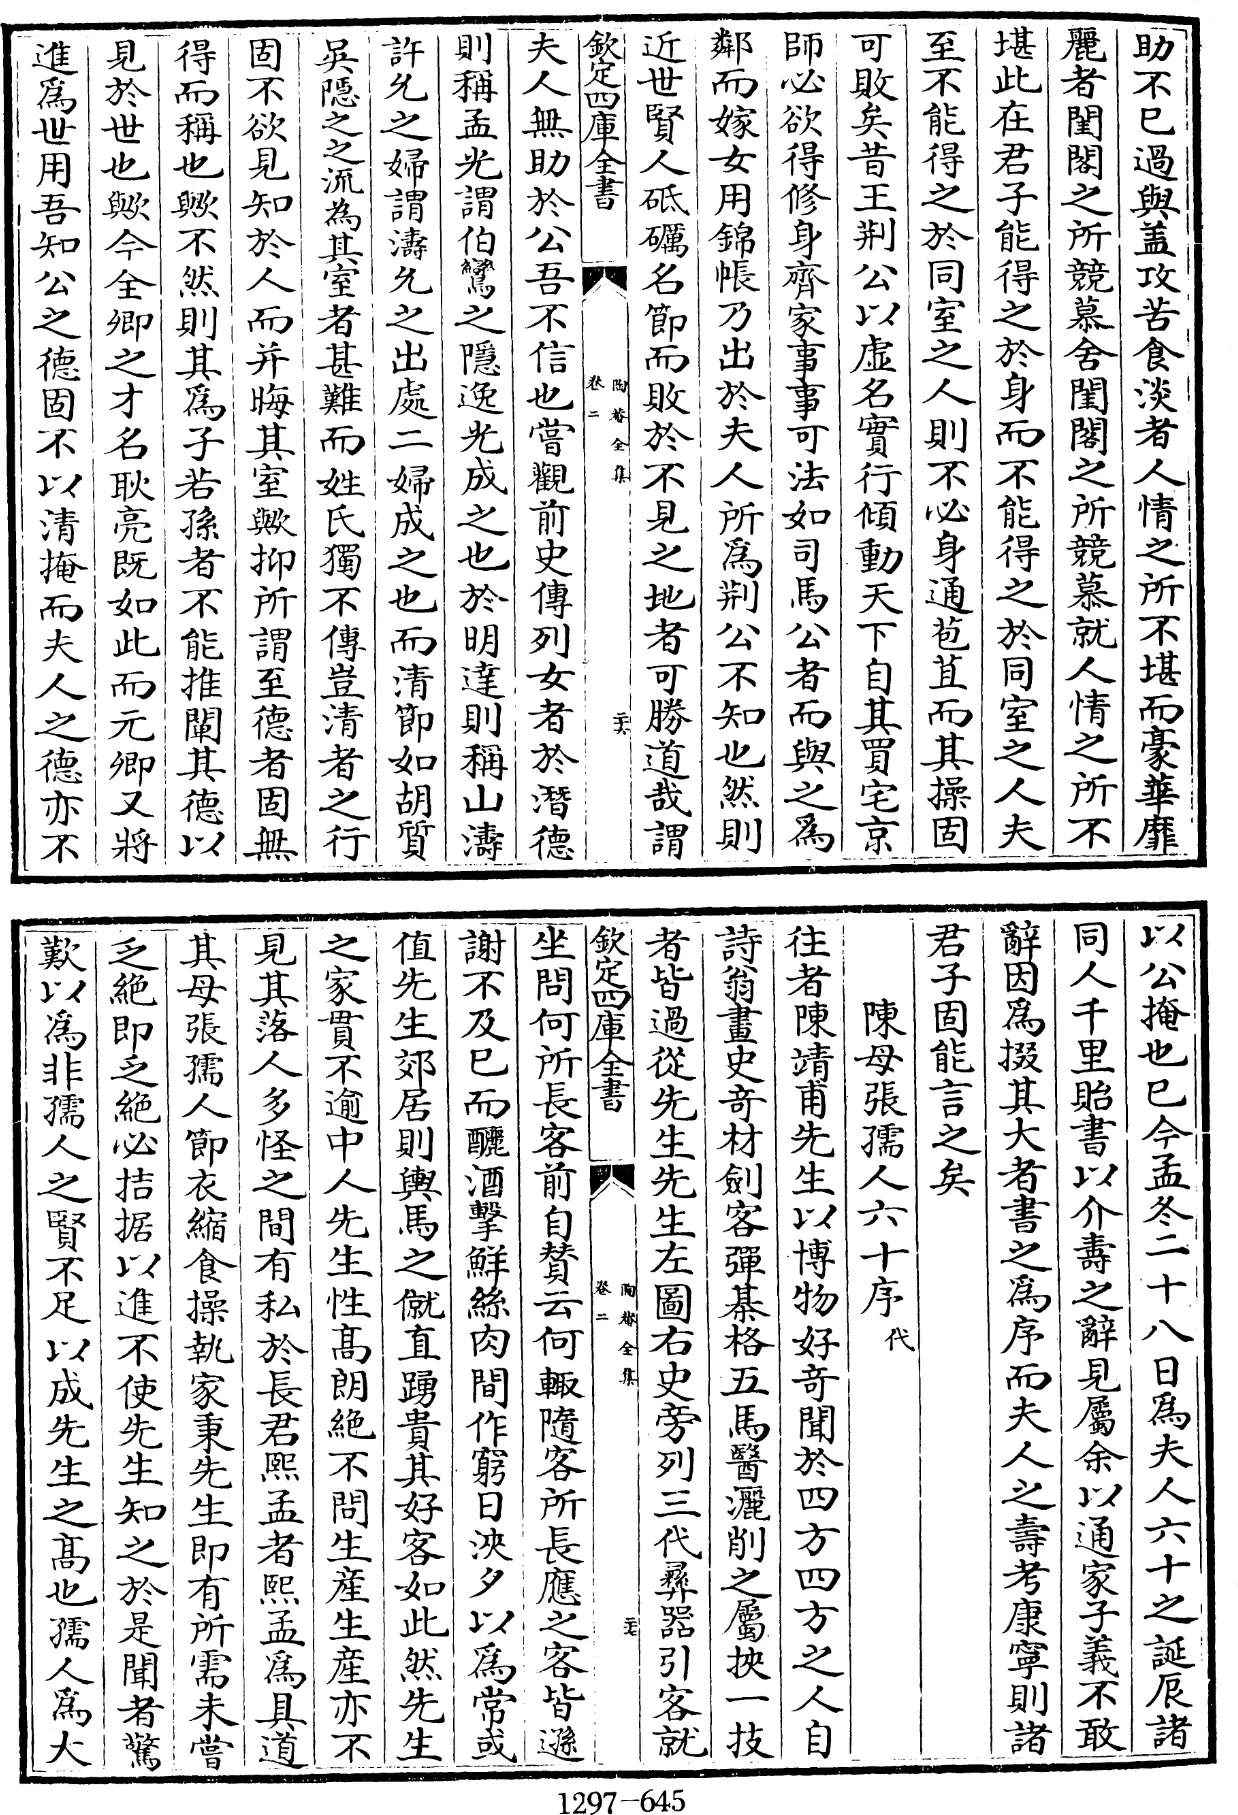 助不已過與盖攻苦食淡者人情之所不堪而豪華靡
麗者閨閣之所競慕舍閨閣之所競慕就人情之所不
堪此在君子能得之於身而不能得之於同室之人夫
至不能得之於同室之人則不必身通苞苴而其操固
可敗矣昔王荆公以虛名實行傾動天下自其買宅京
師必欲得修身齊家事事可法如司馬公者而與之爲
鄰而嫁女用錦帳乃出於夫人所爲荆公不知也然則
近世賢人砥礪名節而敗於不見之地者可勝道哉謂
欽定四庫全書
陶菴全集
卷二
二六
夫人無助於公吾不信也嘗觀前史傳列女者於潛德
則稱孟光謂伯鸞之隱逸光成之也於明達則稱山濤
許允之婦謂濤允之出處二婦成之也而清節如胡質
吳隱之之流為其室者甚難而姓氏獨不傳豈清者之行
固不欲見知於人而并晦其室歟抑所謂至德者固無
得而稱也歟不然則其爲子若孫者不能推闡其德以
見於世也歟今全卿之才名耿亮既如此而元卿又將
進爲世用吾知公之德固不以清掩而夫人之德亦不
以公掩也已今孟冬二十八日爲夫人六十之誕辰諸
同人千里貽書以介壽之辭見屬余以通家子義不敢
辭因爲掇其大者書之爲序而夫人之壽考康寧則諸
君子固能言之矣
陳母張孺人六十序代
往者陳靖甫先生以博物好奇聞於四方四方之人自
詩翁畫史奇材劍客彈棊格五馬醫灑削之屬挾一技
者皆過從先生先生左圖右史旁列三代彞器引客就
欽定四庫全書
陶菴全集
卷二
二七
坐問何所長客前自贊云何輙隨客所長應之客皆遜
謝不及已而釃酒擊鮮絲肉間作窮日浹夕以爲常或
值先生郊居則輿馬之僦直踴貴其好客如此然先生
之家貫不逾中人先生性高朗絶不問生産生産亦不
見其落人多怪之間有私於長君熙孟者熙孟爲具道
其母張孺人節衣縮食操執家秉先生即有所需未嘗
乏絶即乏絶必拮据以進不使先生知之於是聞者驚
歎以爲非孺人之賢不足以成先生之髙也孺人爲大
1297-645